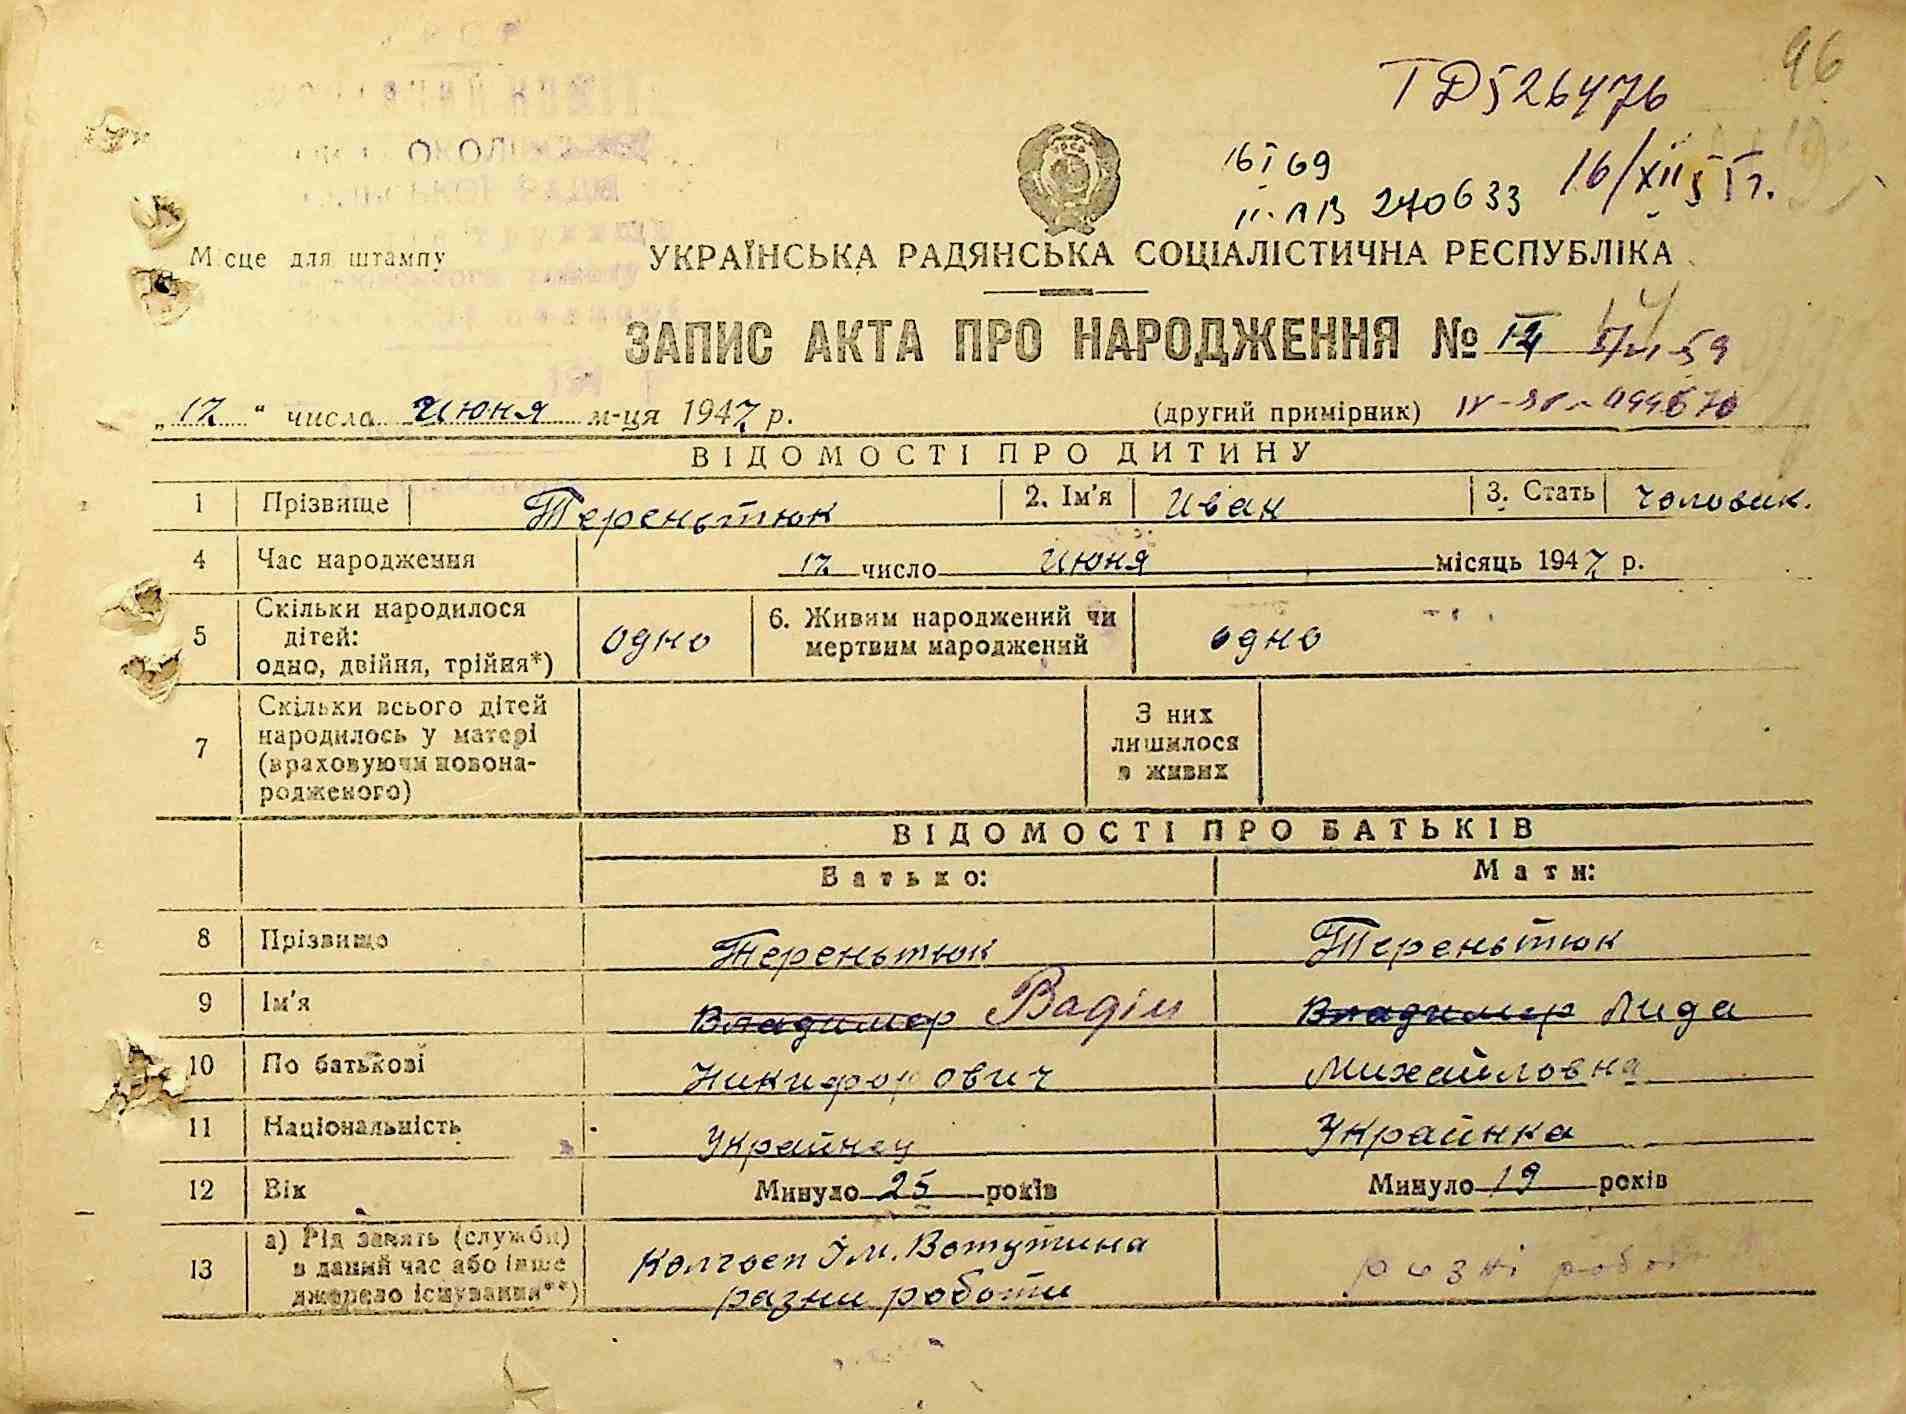 96
ТД526476
16 I 69
II-ЛВ 240633
16/XII 51 г.
Місце для штампу
УКРАЇНСЬКА РАДЯНСЬКА СОЦІАЛІСТИЧНА РЕСПУБЛІКА
ЗАПИС АКТА ПРО НАРОДЖЕННЯ №
„ 17 “ числа июня м-ця 1947 р. (другий примірник)
ВІДОМОСТІ ПРО ДИТИНУ
1 Прізвище Тереньтюк 2. Ім'я Иван 3. Стать чоловик.
4 Час народження 17 число июня місяць 1947 р.
5 Скільки народилося дітей: одно, двійня, трійня*) одно 6. Живим народжений чи мертвим народжений одно
7 Скільки всього дітей народилось у матері (враховуючи новона-родженого) З них лишилося в живих
ВІДОМОСТІ ПРО БАТЬКІВ
Батько: Мати:
8 Прізвищо Тереньтюк Тереньтюк
9 Ім'я Владимер Вадім Владимер Лида
10 По батькові Никифорович Михайловна
11 Національність Украйнец Украйнка
12 Вік Минуло 25 років Минуло 19 років
13 а) Рід занять (служби) в даний час або інше джерело існування**) Колгосп Ім. Ватутина разни роботи ризні робот